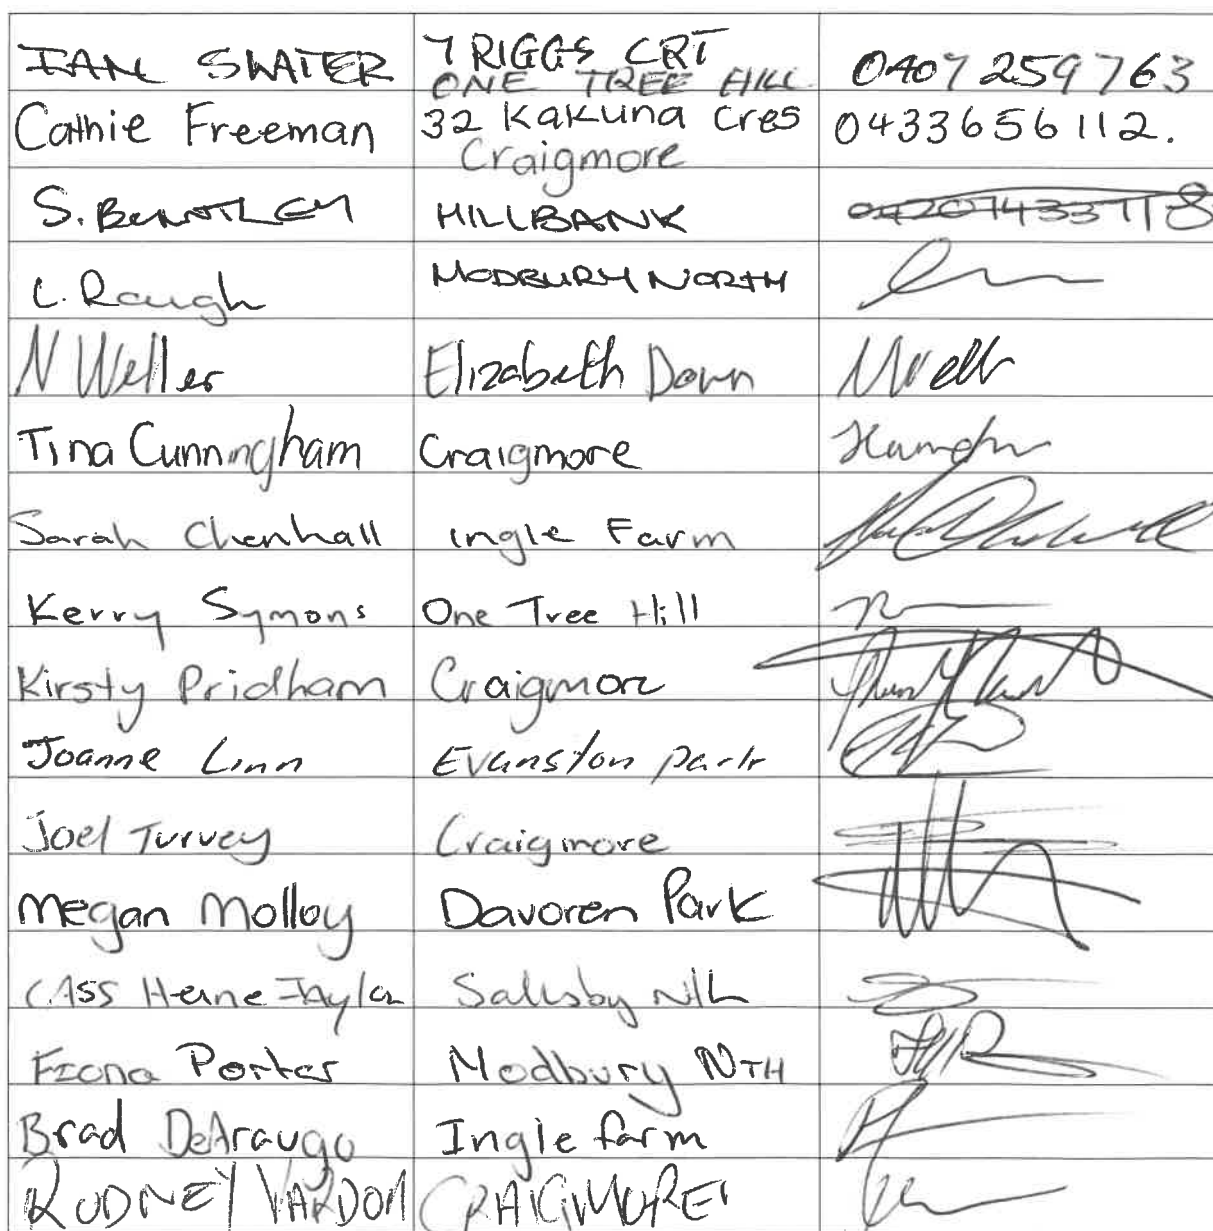 IAN SLATER 7 RIGGS CRT 0407 259 763
ONE TREE HILL
Cathie Freeman 32 Kakuna Cres 0433656112.
Craigmore
S. BENTLEY HILLBANK
L. Raugh MODBURY NORTH
N Weller Elizabeth Down
Tina Cunningham Craigmore
Sarah Chenhall Ingle Farm
Kerry Symons One Tree Hill
Kirsty Pridham Craigmore
Joanne Linn Evanston park
Joel Turvey Craigmore
Megan Molloy Davoren Park
CASS Herne Taylor Salisby Nth
Fiona Porter Modbury NTH
Brad DeAraugo Ingle farm
RODNEY VARDON CRAIGMORE